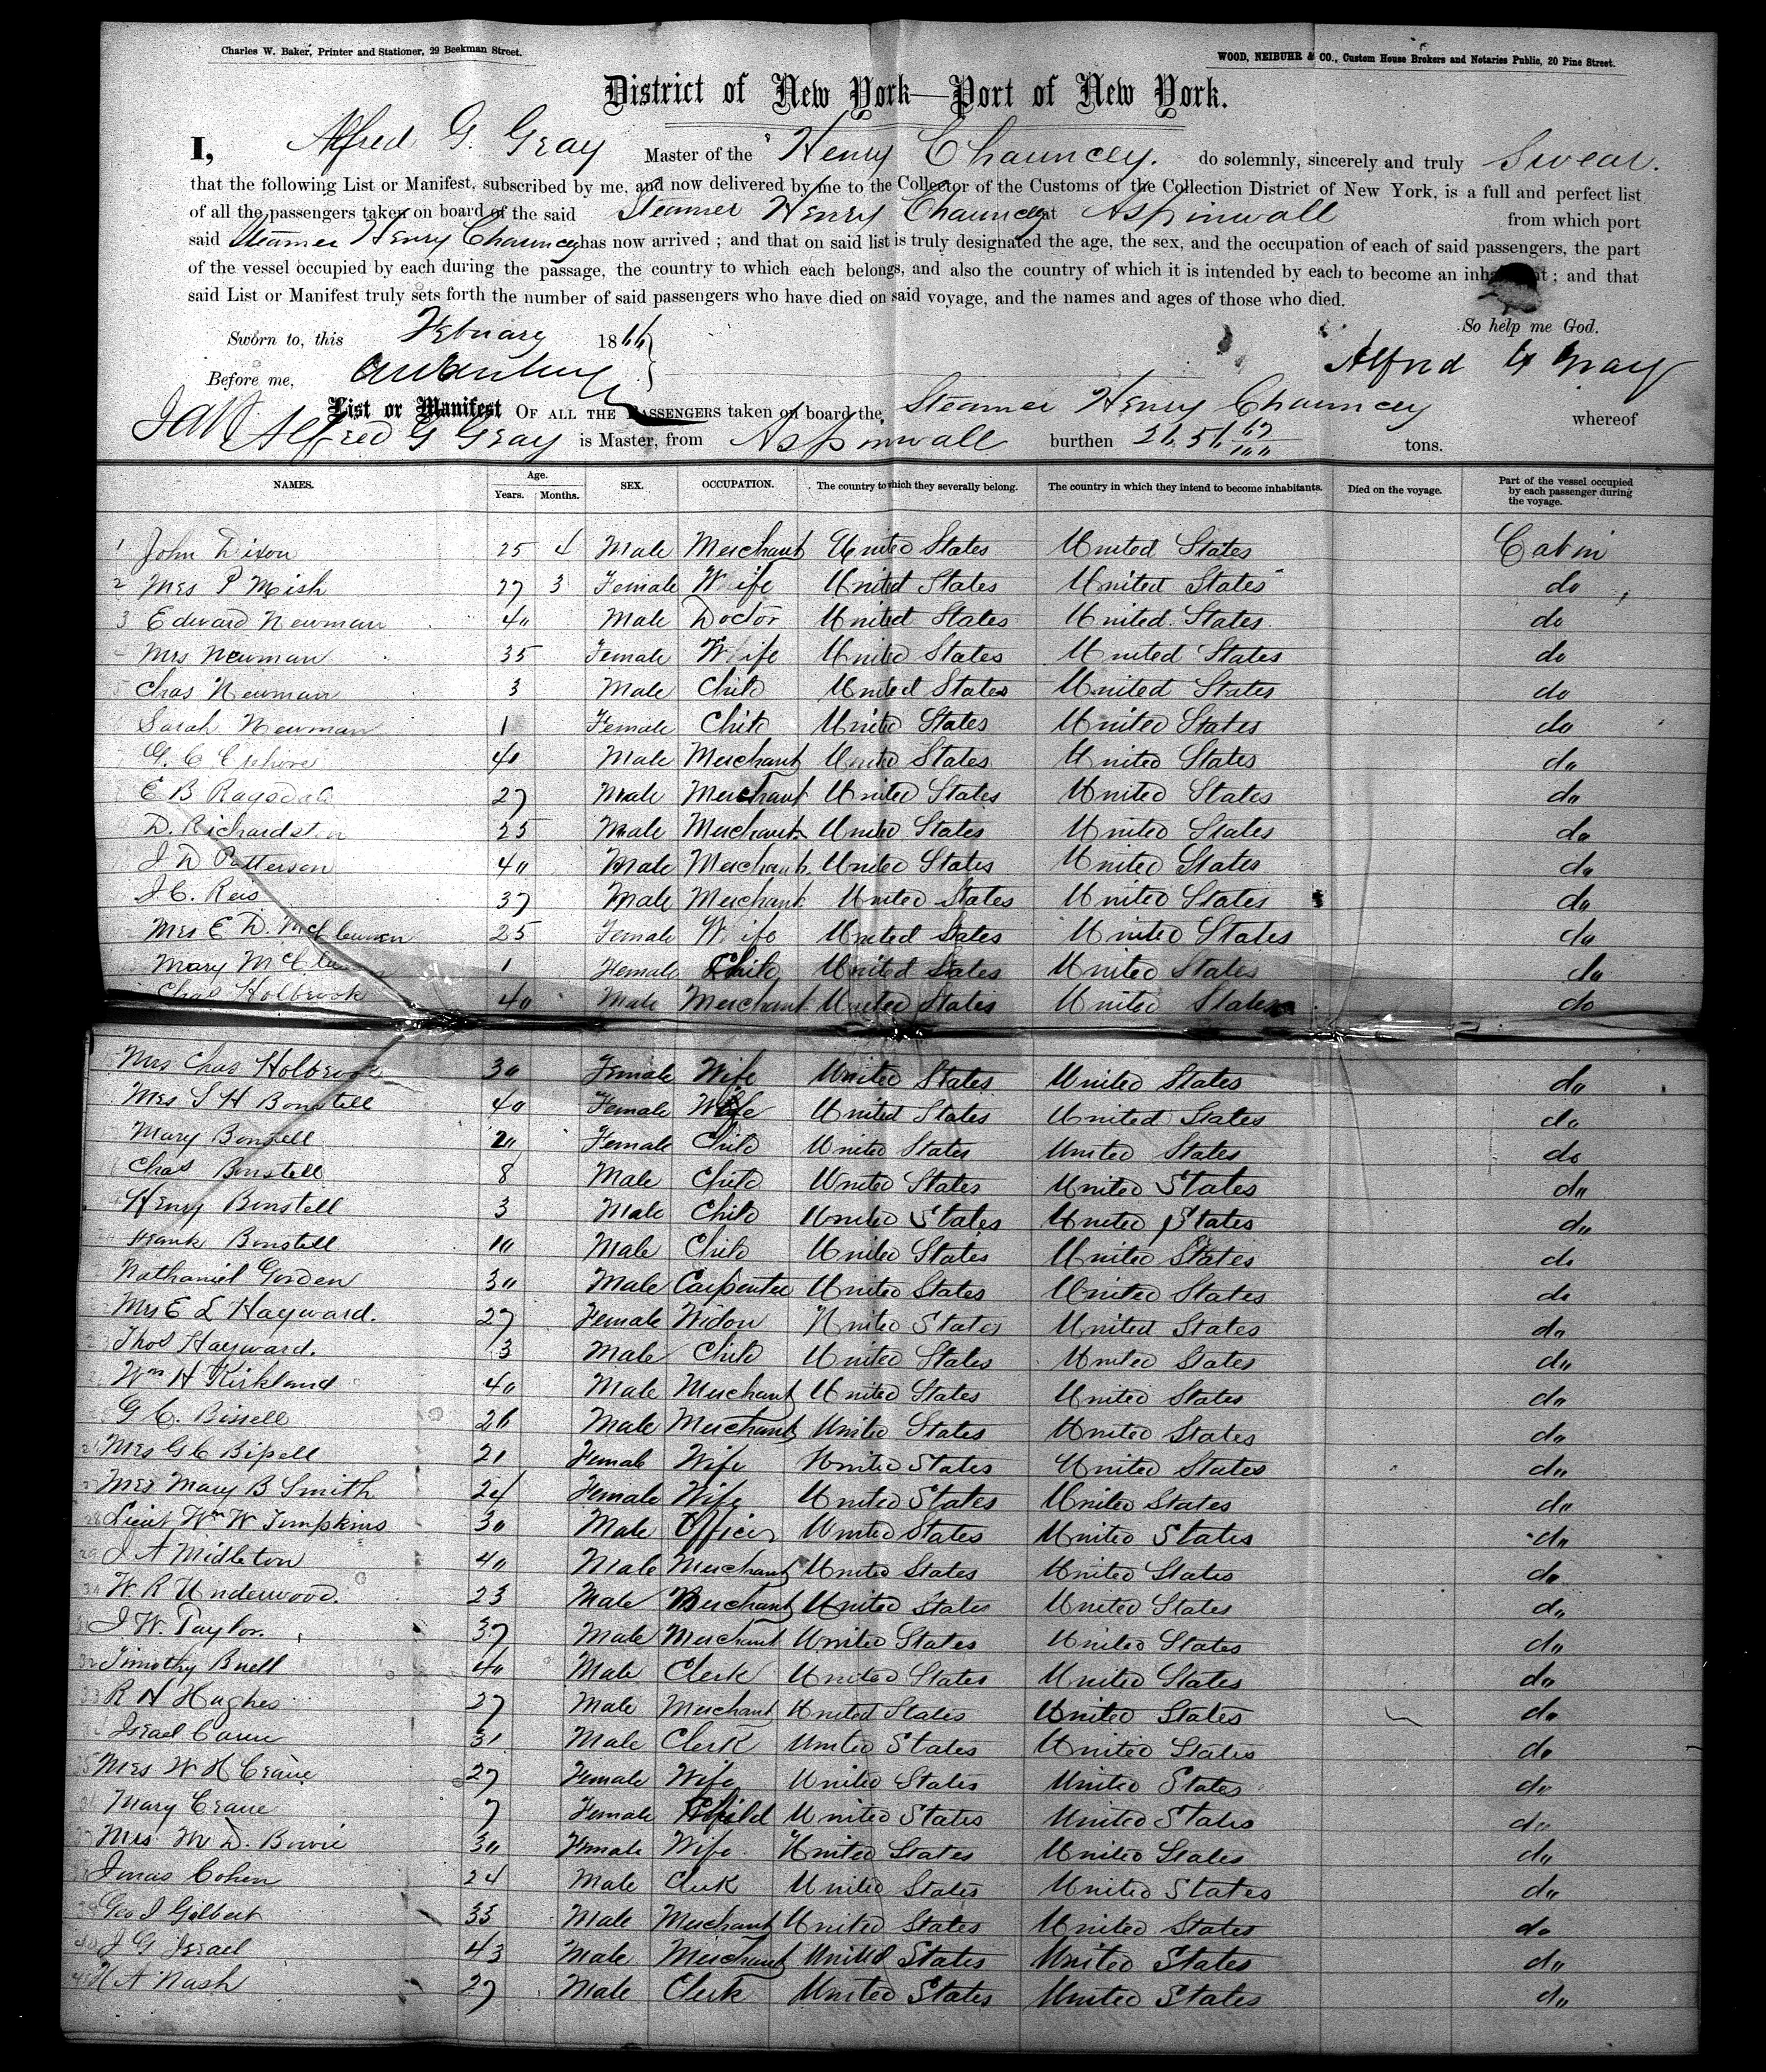 Charles W. Baker, Printer and Stationer, 29 Beekman Street.
WOOD, NEIBUHR & CO., Custom House Brokers and Notaries Public, 20 Pine Street.
District of New York—Port of New York.
I, Alfred G. Gray Master of the Henry Chauncey. do solemnly, sincerely and truly Swear.
that the following List or Manifest, subscribed by me, and now delivered by me to the Collector of the Customs of the Collection District of New York, is a full and perfect list
of all the passengers taken on board of the said Steamer Henry Chauncey at Aspinwall from which port
said Steamer Henry Chauncey has now arrived; and that on said list is truly designated the age, the sex, and the occupation of each of said passengers, the part
of the vessel occupied by each during the passage, the country to which each belongs, and also the country of which it is intended by each to become an inhabitant; and that
said List or Manifest truly sets forth the number of said passengers who have died on said voyage, and the names and ages of those who died.
So help me God.
Sworn to, this February 1866
Alfred G Gray
Before me,
List or Manifest OF ALL THE PASSENGERS taken on board the Steamer Henry Chauncey whereof
Alfred G Gray is Master, from Aspinwall burthen 2656 tons.
NAMES. Age. Years. Months. SEX. OCCUPATION. The country to which they severally belong. The country in which they intend to become inhabitants. Died on the voyage. Part of the vessel occupied by each passenger during the voyage.
1 John Dixon 25 4 Male Merchant United States United States Cabin
2 Mrs P Mish 27 3 Female Wife United States United States do
3 Edward Newman 40 Male Doctor United States United States do
Mrs Newman 35 Female Wife United States United States do
5 Chas Newman 3 Male Child United States United States do
Sarah Newman 1 Female Child United States United States do
G. C. 40 Male Merchant United States United States do
E B Ragsdale 27 Male Merchant United States United States do
D. Richardson 25 Male Merchant United States United States do
J D Patterson 40 Male Merchant United States United States do
J. C. Reis 37 Male Merchant United States United States do
Mrs E D. 25 Female Wife United States United States do
Mary 1 Female Child United States United States do
Chas Holbrook 40 Male Merchant United States United States do
Mrs Chas Holbrook 30 Female Wife United States United States do
Mrs S H Bonstell 40 Female Wife United States United States do
Mary Bonstell 20 Female Child United States United States do
Chas Bonstell 8 Male Child United States United States do
Henry Bonstell 3 Male Child United States United States do
Frank Bonstell 10 Male Child United States United States do
Nathaniel Gorden 30 Male Carpenter United States United States do
Mrs E L Hayward. 27 Female Widow United States United States do
Thos Hayward. 3 Male Child United States United States do
Wm H Kirkland 40 Male Merchant United States United States do
G C. Bissell 26 Male Merchant United States United States do
26 Mrs G C Bissell 21 Female Wife United States United States do
27 Mrs Mary B Smith 24 Female Wife United States United States do
28 Lieut Wm W Tompkins 30 Male Officer United States United States do
29 J A Midleton 40 Male Merchant United States United States do
30 W. R Underwood. 23 Male Merchant United States United States do
31 J W. Taylor. 37 Male Merchant United States United States do
32 Timothy Buell 40 Male Clerk United States United States do
33 R H Hughes 27 Male Merchant United States United States do
34 Israel 31 Male Clerk United States United States do
35 Mrs W H Crane 27 Female Wife United States United States do
36 Mary Crane 7 Female Child United States United States do
37 Mrs M. D. Bowie 30 Female Wife United States United States do
38 Jonas Cohen 24 Male Clerk United States United States do
39 Geo J Gilbert 33 Male Merchant United States United States do
40 J G Israel 43 Male Merchant United States United States do
41 H A Nash 27 Male Clerk United States United States do